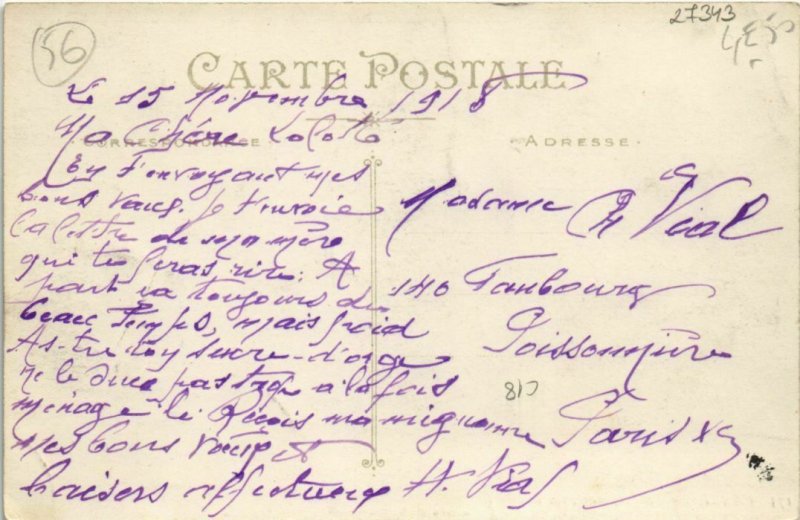 56
27343
CARTE POSTALE
Le 15 Novembre 1918
CORRESPONDANCE
ADRESSE
Ma Chère Lolotte
En t'envoyant mes
bons vœux, je t'envoie
la lettre de ma mère
qui te feras rire. A
part ça toujours du
beau temps, mais froid
As-tu reçu sucre-d'orge
ne le suce pas trop à la fois
ménage-le Reçois ma mignonne
mes bons vœux et
baisers affectueux H. Vial
Madame Ch Vial
140 Faubourg
Poissonnière
Paris Xe